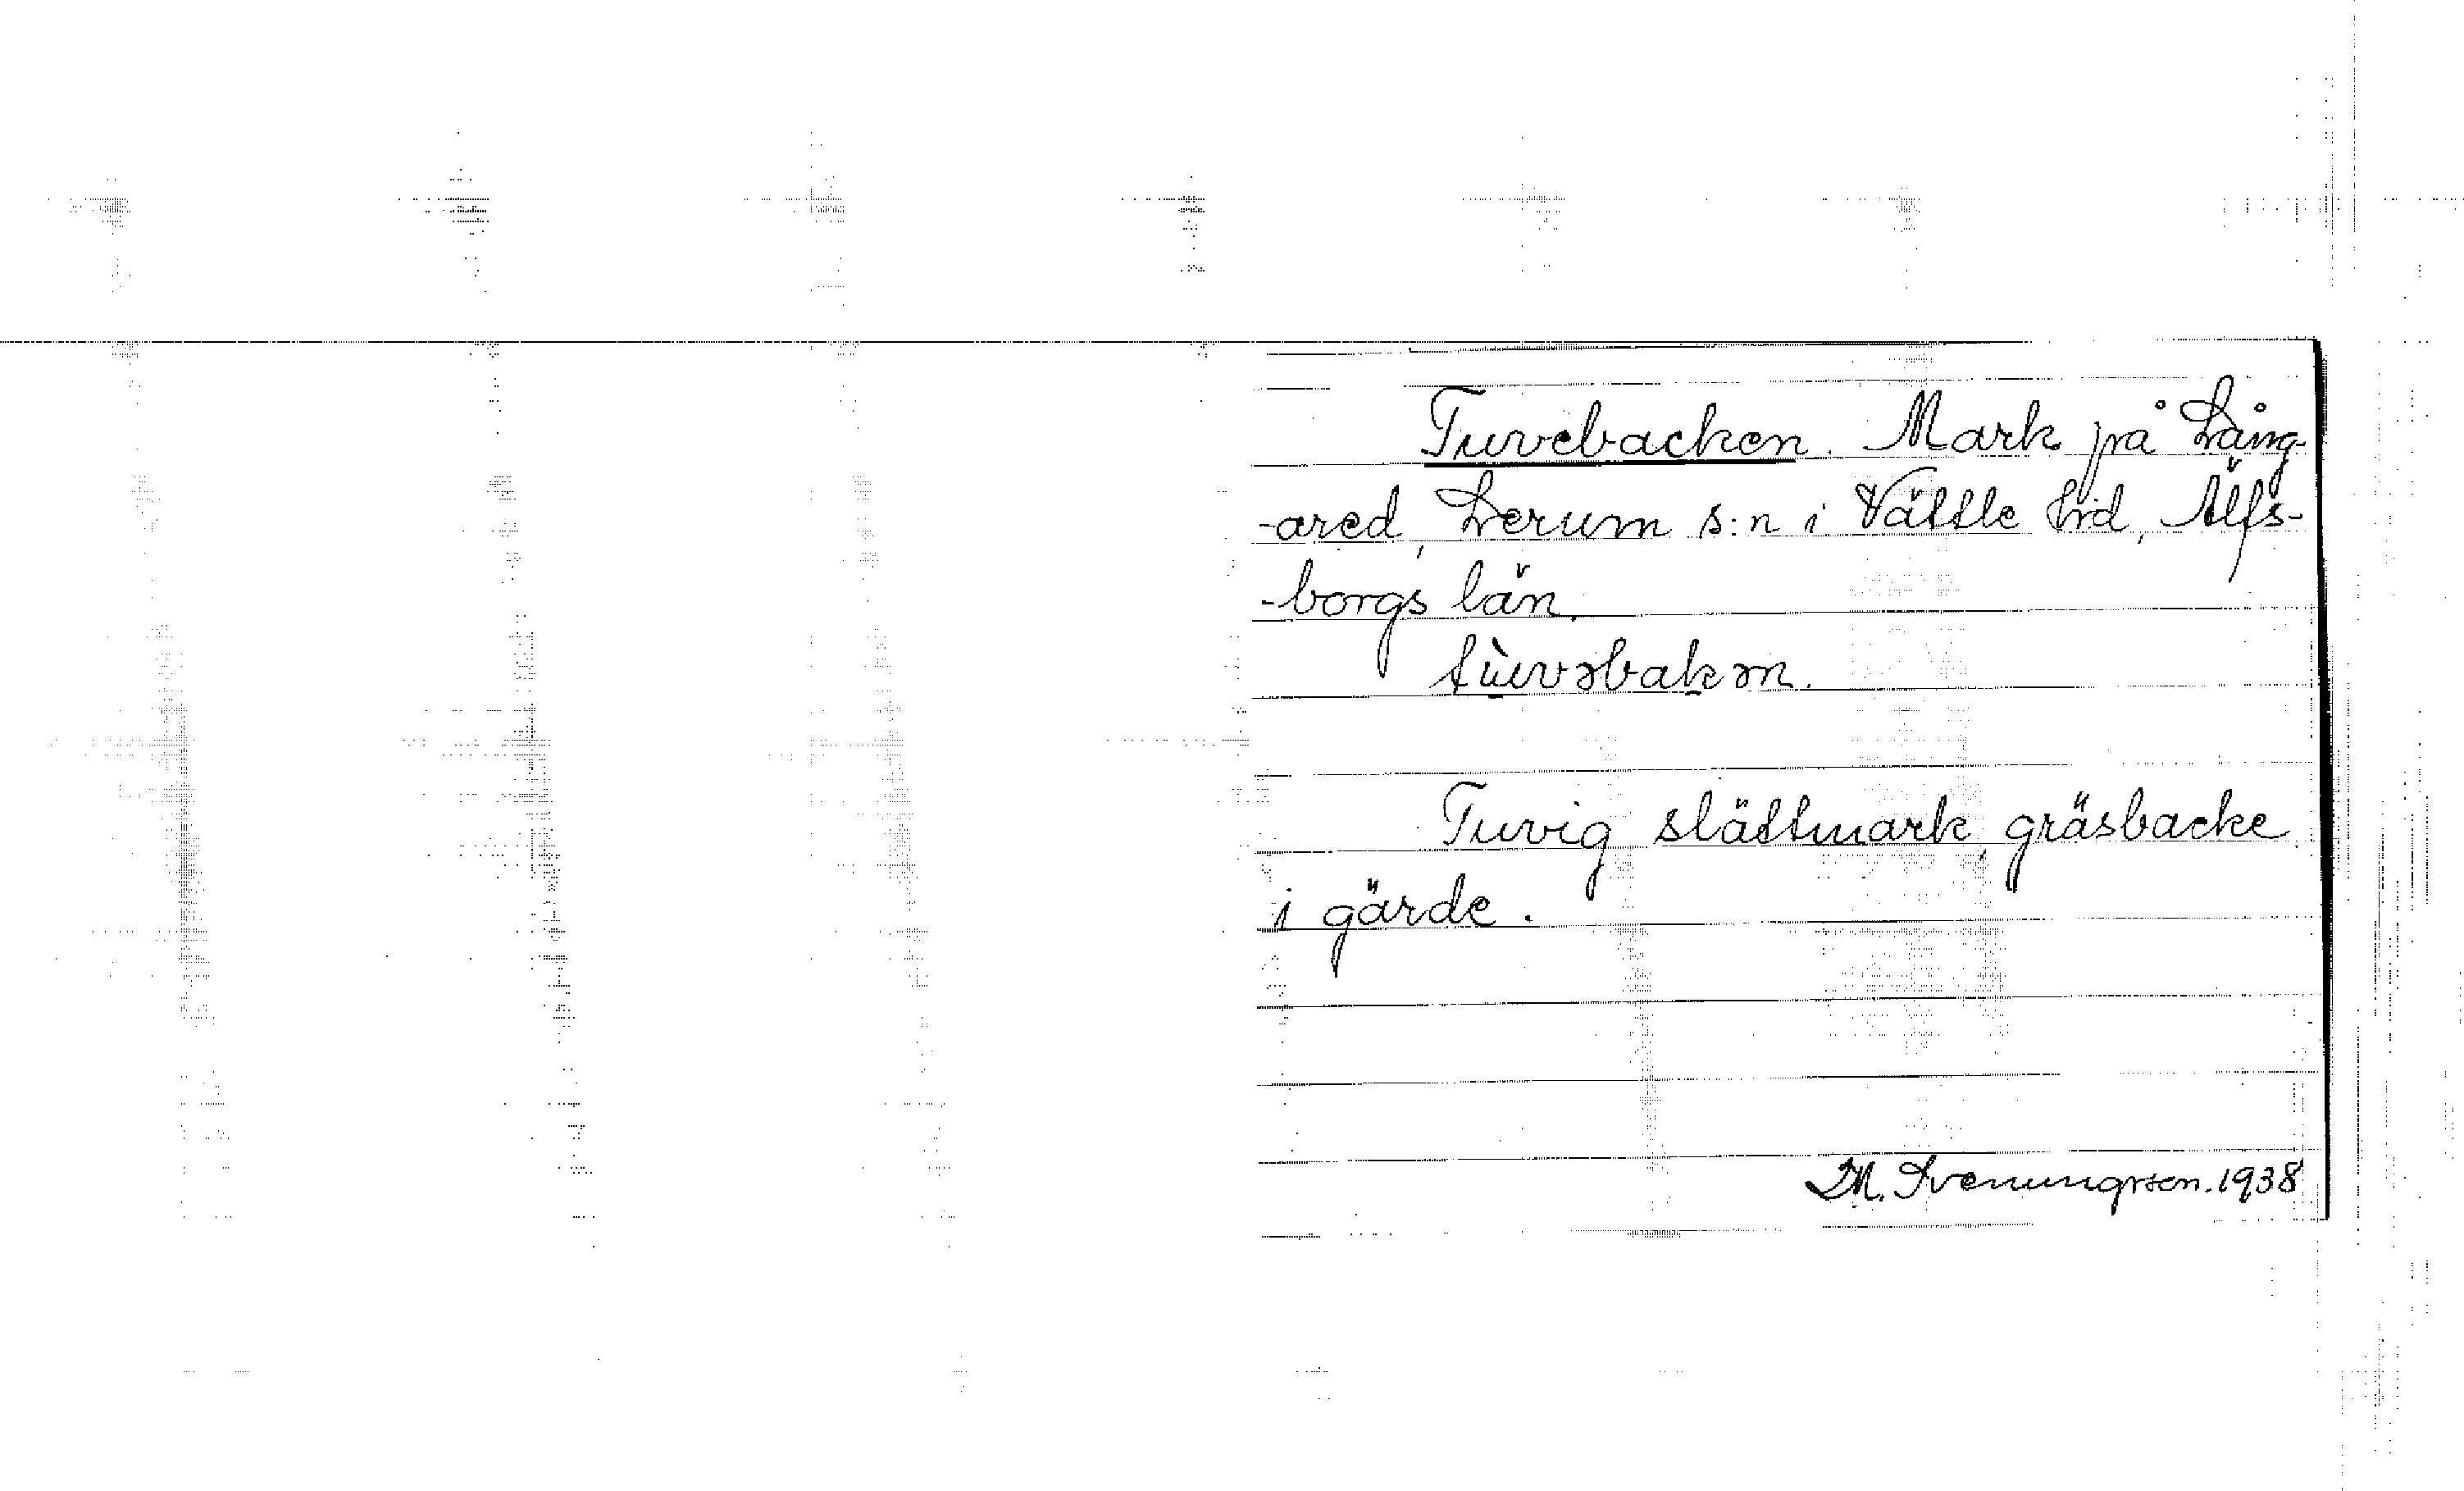 Tuvebacken. Mark på Lång-
-ared, Lerum s:n i Vättle hd, Älfs-
-borgs län.
tùvəbakən.
Tuvig slättmark, gräsbacke
i gärde.
M. Svenungsson. 1938